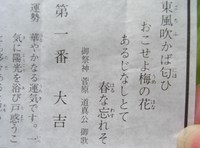 東風吹かば匂ひ
おこせよ梅の花
あるじなしとて
春な忘れそ
御祭神 菅原道真公 御歌
第一番 大吉
運勢 華やかなる運気です。
気に陽光を浴び戸惑うこ